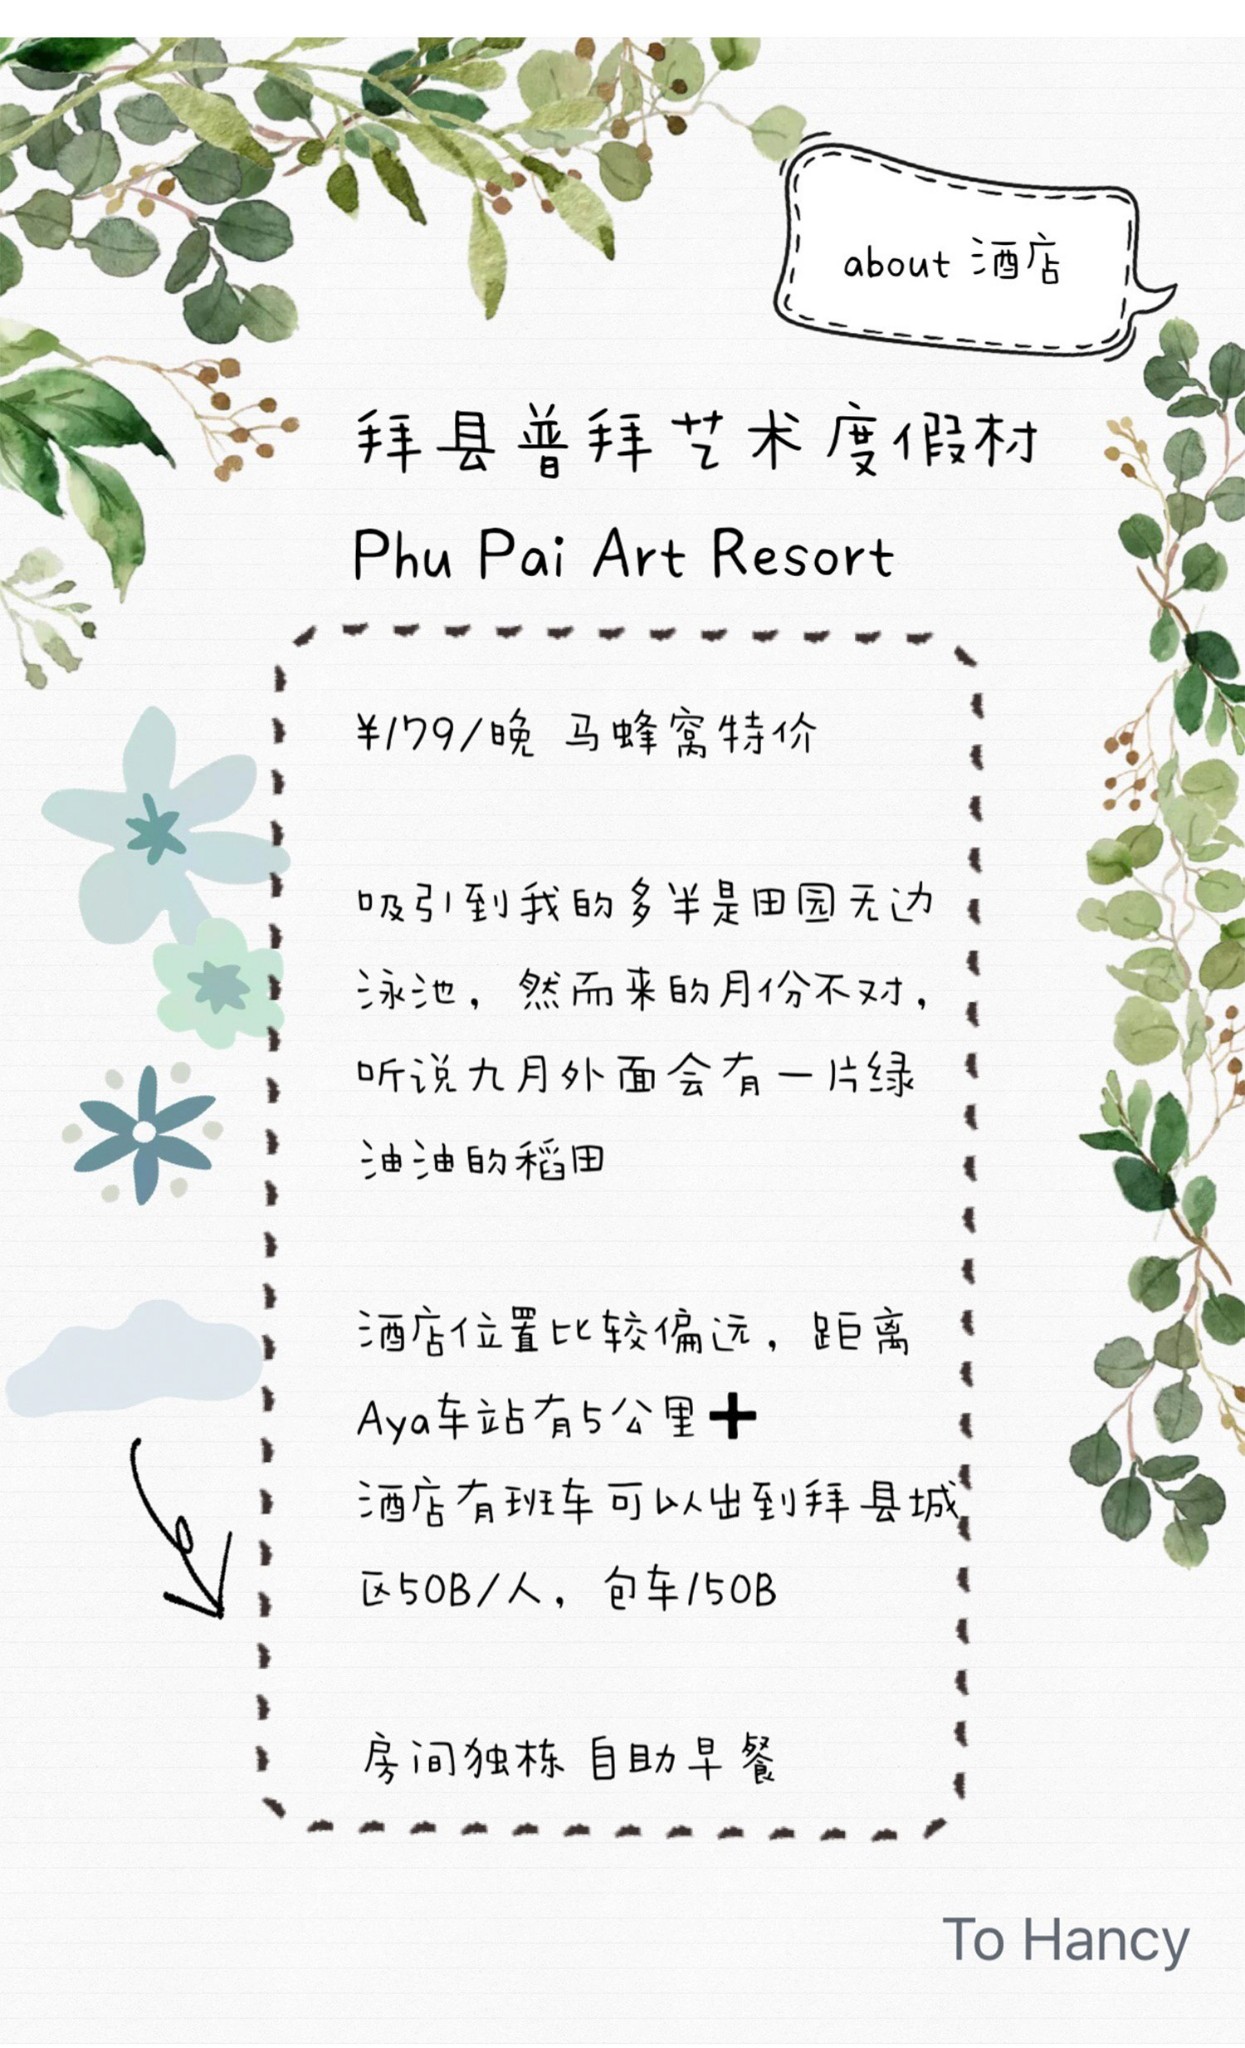 about 酒店
拜县普拜艺术度假村
Phu Pai Art Resort
¥179/晚 马蜂窝特价
吸引到我的多半是田园无边
泳池，然而来的月份不对，
听说九月外面会有一片绿
油油的稻田
酒店位置比较偏远，距离
Aya车站有5公里➕
酒店有班车可以出到拜县城
区50B/人，包车150B
房间独栋 自助早餐
To Hancy